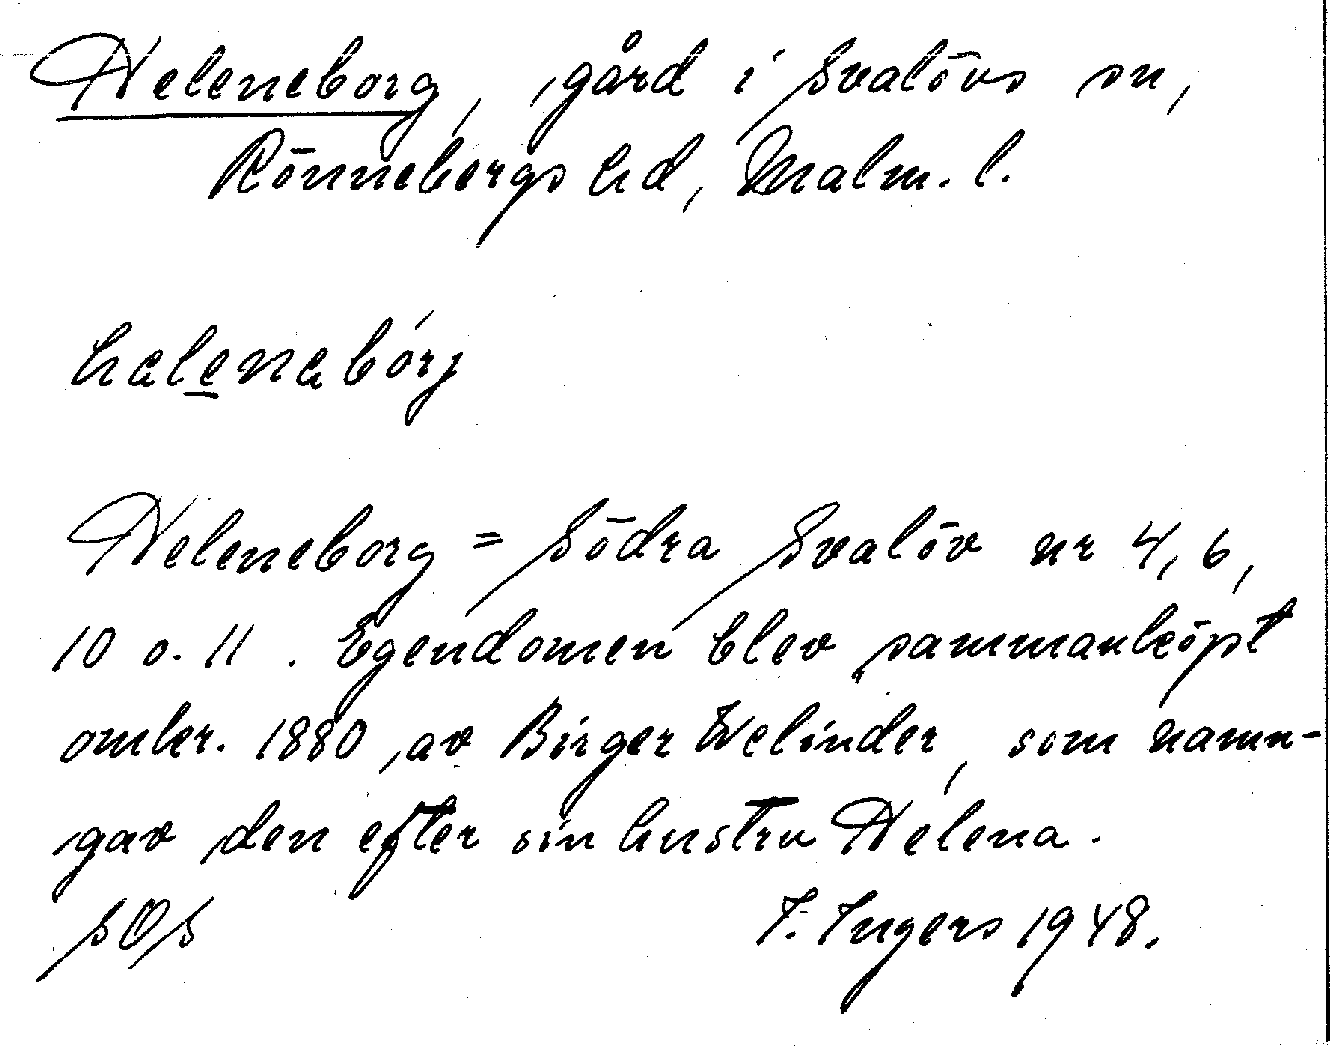 Heleneborg, gård i Svalövs sn,
Rönnebergs hd, Malm. l.
helenəbórj
Heleneborg = Södra Svalöv nr 4, 6,
10 o. 11. Egendomen blev sammanköpt
omkr. 1880, av Birger Welinder, som namn-
gav den efter sin hustru Helena.
SOS I. Ingers 1948.